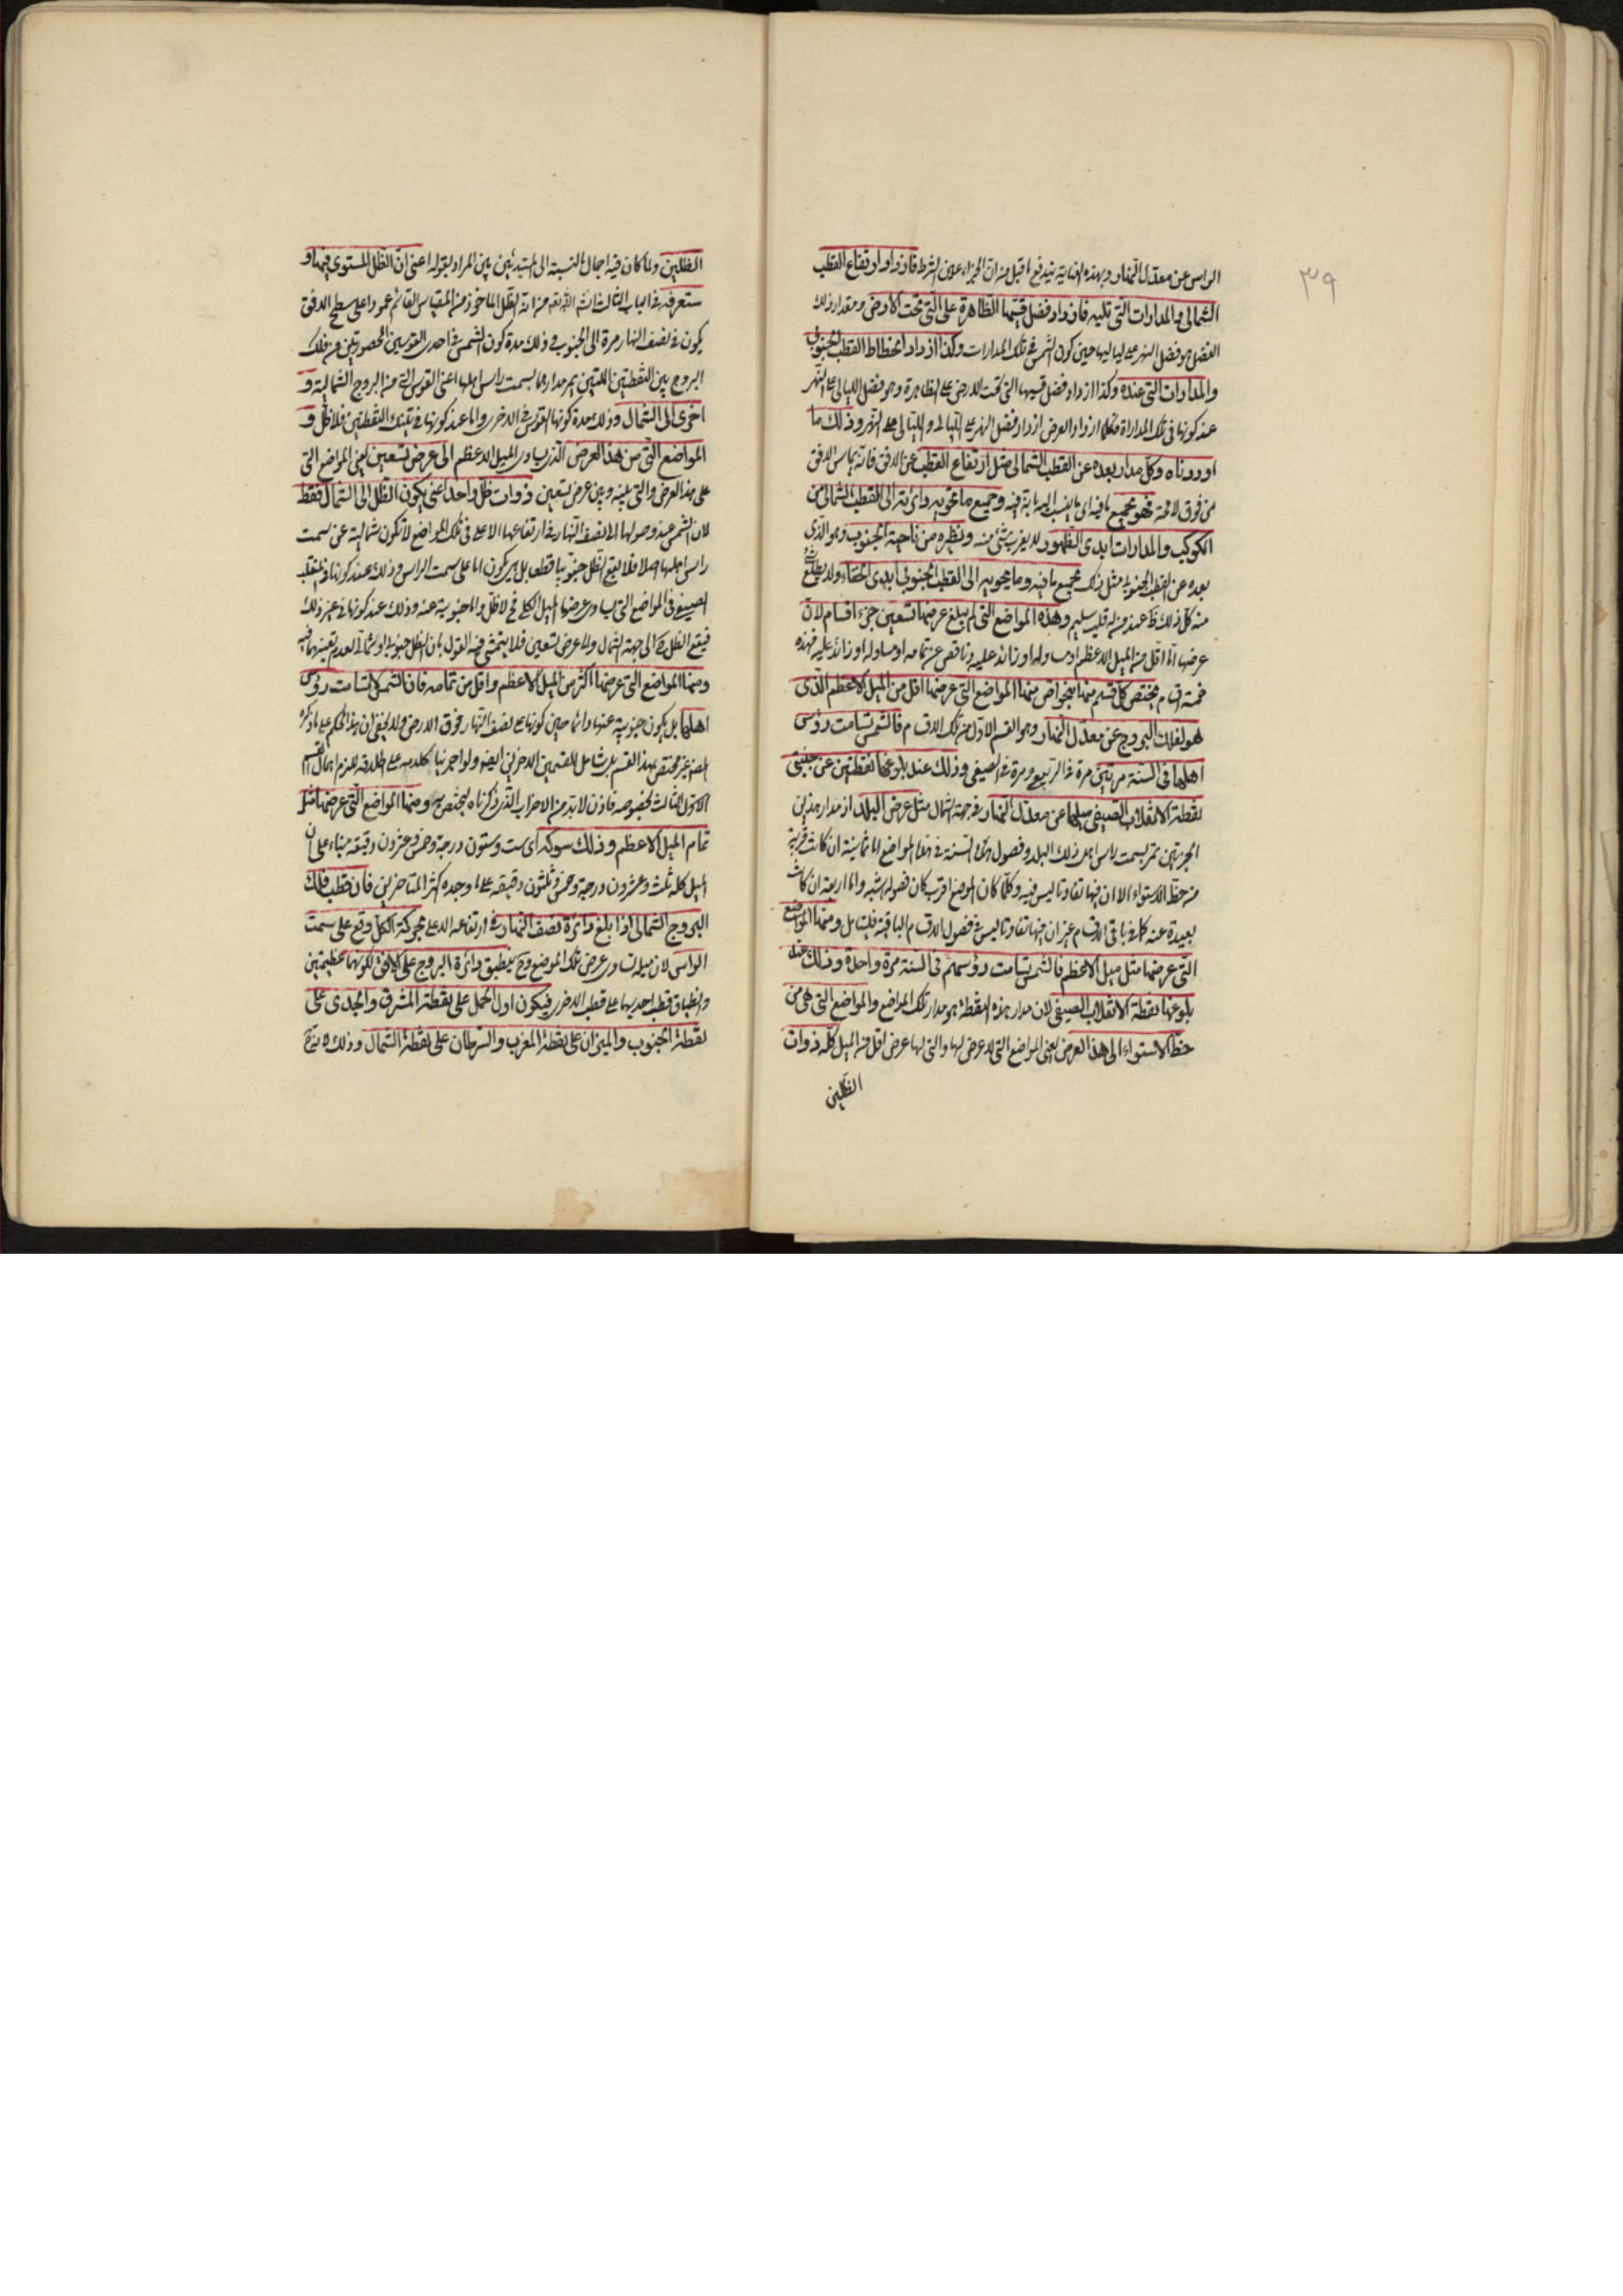 ٣٩
الراس عن معدل النهار وبهذه العناية يندفع ما قيل من ان الجزاء عين الشرط فازداد ارتفاع القطب
الشمالى والمدارات التى تليه فازداد فضل قسيها الظاهرة على التى تحت الارض ومقدار ذلك
الفضل هو فضل النهر على لياليها حين كون الشمس فى تلك المدارات وكذا ازداد انحطاط القطب الجنوبى
والمدارات التى عنده وكذا ازداد فضل قسيها التى تحت الارض على الظاهرة وهو فضل الليالى على النهر
عند كونها فى تلك المدارات فكلما ازداد العرض ازداد فضل النهر على الليالى والليالى على النهر وذلك ما
اوردناه وكل مدار بعده عن القطب الشمالى مثل ارتفاع القطب عن الافق فانه يماس الافق
من فوق لا محة فهو بجميع ما فيه اى بالنسبة اليه وجميع ما تحويه دائرته الى القطب الشمالى من
الكوكب والمدارات ابدى الظهور لا يغرب شئ منه ونظيره من ناحية الجنوب وهو الذى
بعده عن القطب الجنوبى مثل ذلك بجميع ما فيه وما يحويه الى القطب الجنوبى ابدى الخفاء ولا يطلع شئ
منه كل ذلك ظ عند من له قلب سليم وهذه المواضع التى لم يبلغ عرضها تسعين جزء اقسام لان
عرضها اما اقل من الميل الاعظم او مساو له او زائد عليه وناقص عن تمامه او مساو له او زائد عليه فهذه
خمسة اقسام يختص كل قسم منها بخواص منها المواضع التى عرضها اقل من الميل الاعظم الذى
هو لفلك البروج عن معدل النهار وهو القسم الاول من تلك الاقسام فالشمس تسامت رؤس
اهلها فى السنة مرتين مرة فى الربيع ومرة فى الصيف وذلك عند بلوغها نقطتين عن جنبتى
نقطة الانقلاب الصيفى ميلهما عن معدل النهار فى جهة الشمال مثل عرض البلد اذ مدار هذين
الجزئين تمر بسمت راس اهل ذلك البلد وفصول هذه السنة فى هذه المواضع اما ثمانية ان كانت قريبة
من خط الاستواء الا ان فيها تفاوتا ليس فيه وكلما كان الموضع اقرب كان فصوله اشبه واما اربعة ان كانت
بعيدة عنه كما فى باقى الاقسام غير ان فيها تفاوتا ليس فى فصول الاقسام الباقية فليتامل ومنها المواضع
التى عرضها مثل ميل الاعظم فالشمس تسامت رؤسهم فى السنة مرة واحدة وذلك عند
بلوغها نقطة الانقلاب الصيفى لان مدار هذه النقطة هو مدار تلك المواضع والمواضع التى هى من
خط الاستواء الى هذا العرض يعنى المواضع التى لا عرض لها والتى لها عرض اقل من الميل كله ذوات
الظلين
الظلين ولما كان فيه اجمال بالنسبة الى المبتدئين بين المراد بقوله اعنى ان الظل المستوى فيها و
ستعرفه فى الباب الثالث انشاء الله تعه من انه الظل الماخوذ من المقياس القائم عمودا على سطح الافق
يكون فى نصف النهار مرة الى الجنوب وذلك مدة كون الشمس فى احدى القوسين المحصورتين من فلك
البروج بين النقطتين اللتين يمر مدارهما بسمت راس اهلها اعنى القوس التى من البروج الشمالية و
اخرى الى الشمال وذلك مدة كونها القوس فى الاخرى واما عند كونها فى تينك النقطتين فلا ظل و
المواضع التى من هذا العرض الذى يساوى الميل الاعظم الى عرض تسعين يعنى المواضع التى
على هذا العرض والتى بينه وبين عرض تسعين ذوات ظل واحد اعنى يكون الظل الى الشمال فقط
لان الشمس عند وصولها الى نصف النهار فى ارتفاعها الاعلى فى تلك المواضع لا تكون شمالية عن سمت
راس اهلها اصلا فلا يقع الظل جنوبيا قط بل هى يكون اما على سمت الراس وذلك عند كونها فى المنقلب
الصيفى فى المواضع التى يساوى عرضها الميل الكلى فح لا ظل واما جنوبية عنه وذلك عند كونها فى غير ذلك
فيقع الظل ح الى جهة الشمال واما عرض تسعين فلا يتمشى فيه القول بان الظل جنوبى او شمالى لعدم تعينهما فيه
ومنها المواضع التى عرضها اكثر من الميل الاعظم واقل من تمامه فان الشمس لا تسامت رؤس
اهلها بل يكون جنوبية عنها دائما حين كونها على نصف النهار فوق الارض ولا يخفى ان هذا الحكم على ما ذكره
المص غير مختص بهذا القسم بل شامل للقسمين الاخرين ايضا ولو اجرينا كلامه على اطلاقه للزم اهمال القسم
الاول الثالث بخصوصه فاذن لا بد من الاضراب الذى ذكرناه ليختص به ومنها المواضع التى عرضها مثل
تمام الميل الاعظم وذلك سوكه اى ست وستون درجة وخمس وعشرون دقيقة بناء على ان
الميل كله ثلث وعشرون درجة وخمس وثلثون دقيقه على ما وجده اكثر المتاخرين فان قطب فلك
البروج الشمالى اذا بلغ دائرة نصف النهار فى ارتفاعه الاعلى بحركة الكل وقع على سمت
الراس لان ميله يساوى عرض تلك الموضع وح ينطبق دائرة البروج على الافق لكونهما عظيمتين
وانطباق قطب احديهما على قطب الاخرى فيكون اول الحمل على نقطة المشرق والجدى على
نقطة الجنوب والميزان على نقطة المغرب والسرطان على نقطة الشمال وذلك